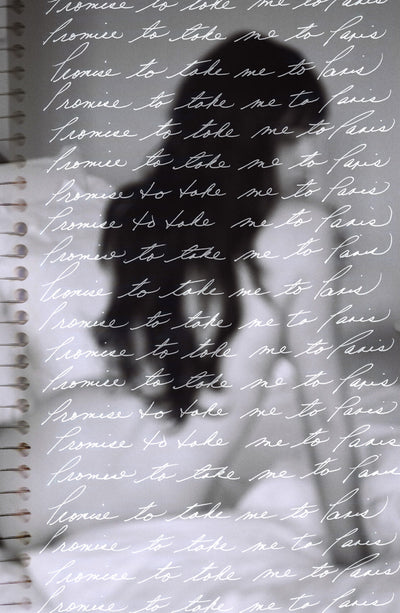 Promise to take me to Paris
Promise to take me to Paris
Promise to take me to Paris
Promise to take me to Paris
Promise to take me to Paris
Promise to take me to Paris
Promise to take me to Paris
Promise to take me to Paris
Promise to take me to Paris
Promise to take me to Paris
Promise to take me to Paris
Promise to take me to Paris
Promise to take me to Paris
Promise to take me to Paris
Promise to take me to Paris
Promise to take me to Paris
Promise to take me to Paris
Promise to take me to Paris
Promise to take me to Paris
Promise to take me to Paris